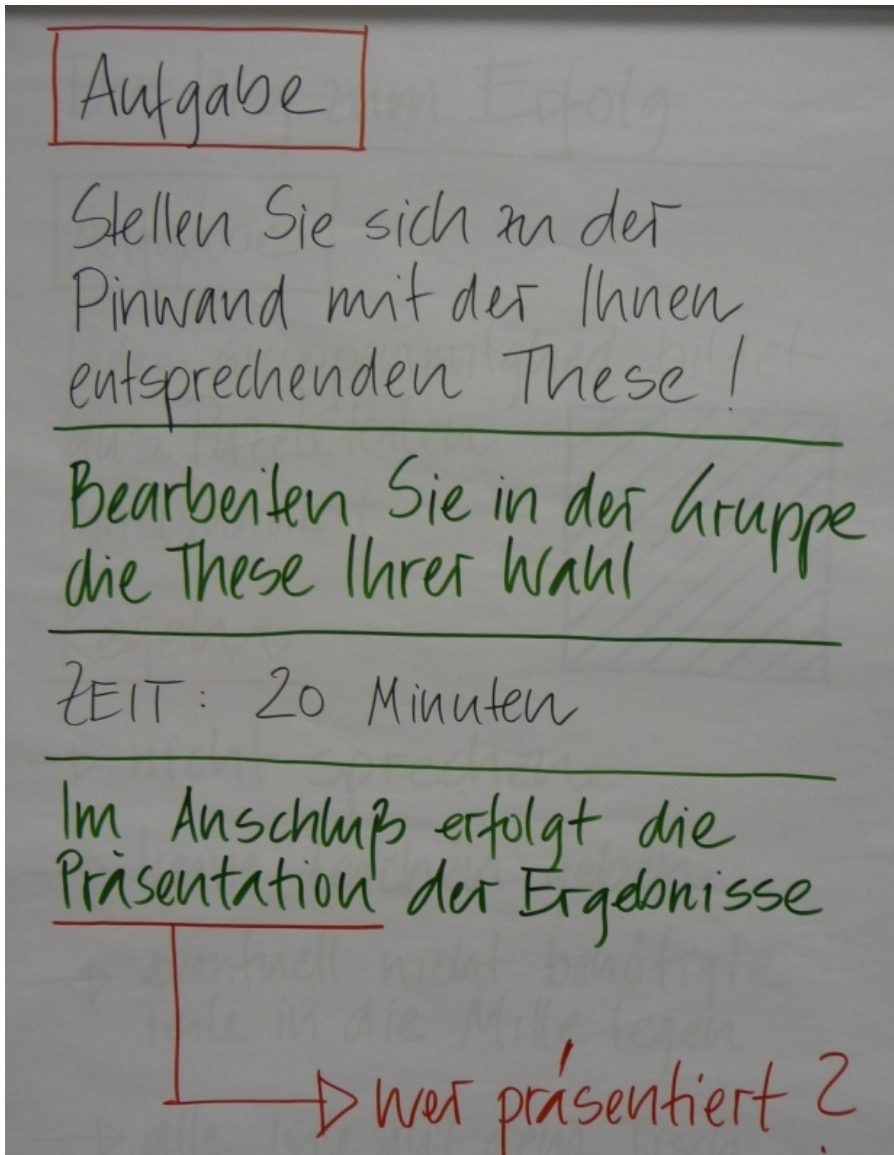 Aufgabe
Stellen Sie sich zu der
Pinwand mit der Ihnen
entsprechenden These!
Bearbeiten Sie in der Gruppe
die These Ihrer Wahl
ZEIT: 20 Minuten
Im Anschluß erfolgt die
Präsentation der Ergebnisse
wer präsentiert?